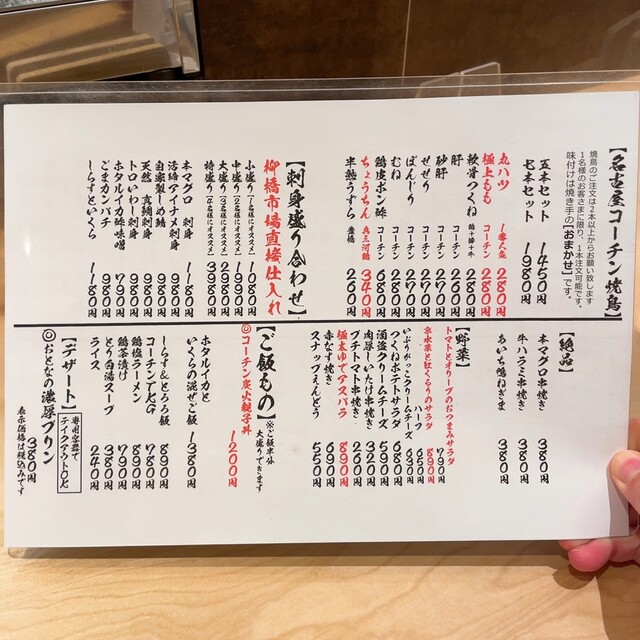 【名古屋コーチン焼鳥】
焼鳥のご注文は2本以上からお願い致します
1名様のお客さまに限り、1本注文可能です。
味付けは焼き手の【おまかせ】です。
五本セット 1450円
七本セット 1980円
丸ハツ 1番人気 280円
極上もも コーチン 280円
軟骨つくね 鶏+豚+牛
肝 コーチン 260円
砂肝 コーチン
せせり コーチン
ぼんじり コーチン 270円
むね コーチン 280円
鶏皮ポン酢 コーチン 680円
ちょうちん 奥三河鶏 340円
半熟うずら 豊橋 260円
【刺身盛り合わせ】
柳橋市場直接仕入れ
小盛り(1名様にオススメ)
中盛り(2名様にオススメ)
大盛り(3名様にオススメ)
特盛り(4名様にオススメ) 3980円
本マグロ 刺身 1180円
活〆アイナメ刺身
自家製しめ鯖
天然 真鯛刺身
トロいわし刺身
ホタルイカ酢味噌 790円
ごまカンパチ 980円
しらすといくら 1180円
【絶品】
本マグロ串焼き 380円
牛ハラミ串焼き 380円
あいち鴨ねぎま 380円
【野菜】
トマトとオリーブのおつまみサラダ 790円
京水菜と紅くるりのサラダ 890円
ハーフ 650円
いぶりがっこクリームチーズ 630円
つくねポテトサラダ 680円
酒盗クリームチーズ 590円
肉厚しいたけ串焼き 320円
プチトマト串焼き 260円
極太ゆでアスパラ 890円
赤なす焼き 690円
スナップえんどう 520円
【ご飯もの】
※ご飯半分
大盛りできます
◎コーチン炭火親子丼 1200円
ホタルイカと
いくらの混ぜご飯 1380円
しらす&とろろ飯 890円
コーチンTKG 590円
鶏塩ラーメン 890円
鶏茶漬け 790円
とり白湯スープ 380円
ライス 240円
【デザート】
専用容器で
テイクアウトOK
◎おとなの濃厚プリン 380円
表示価格は税込みです